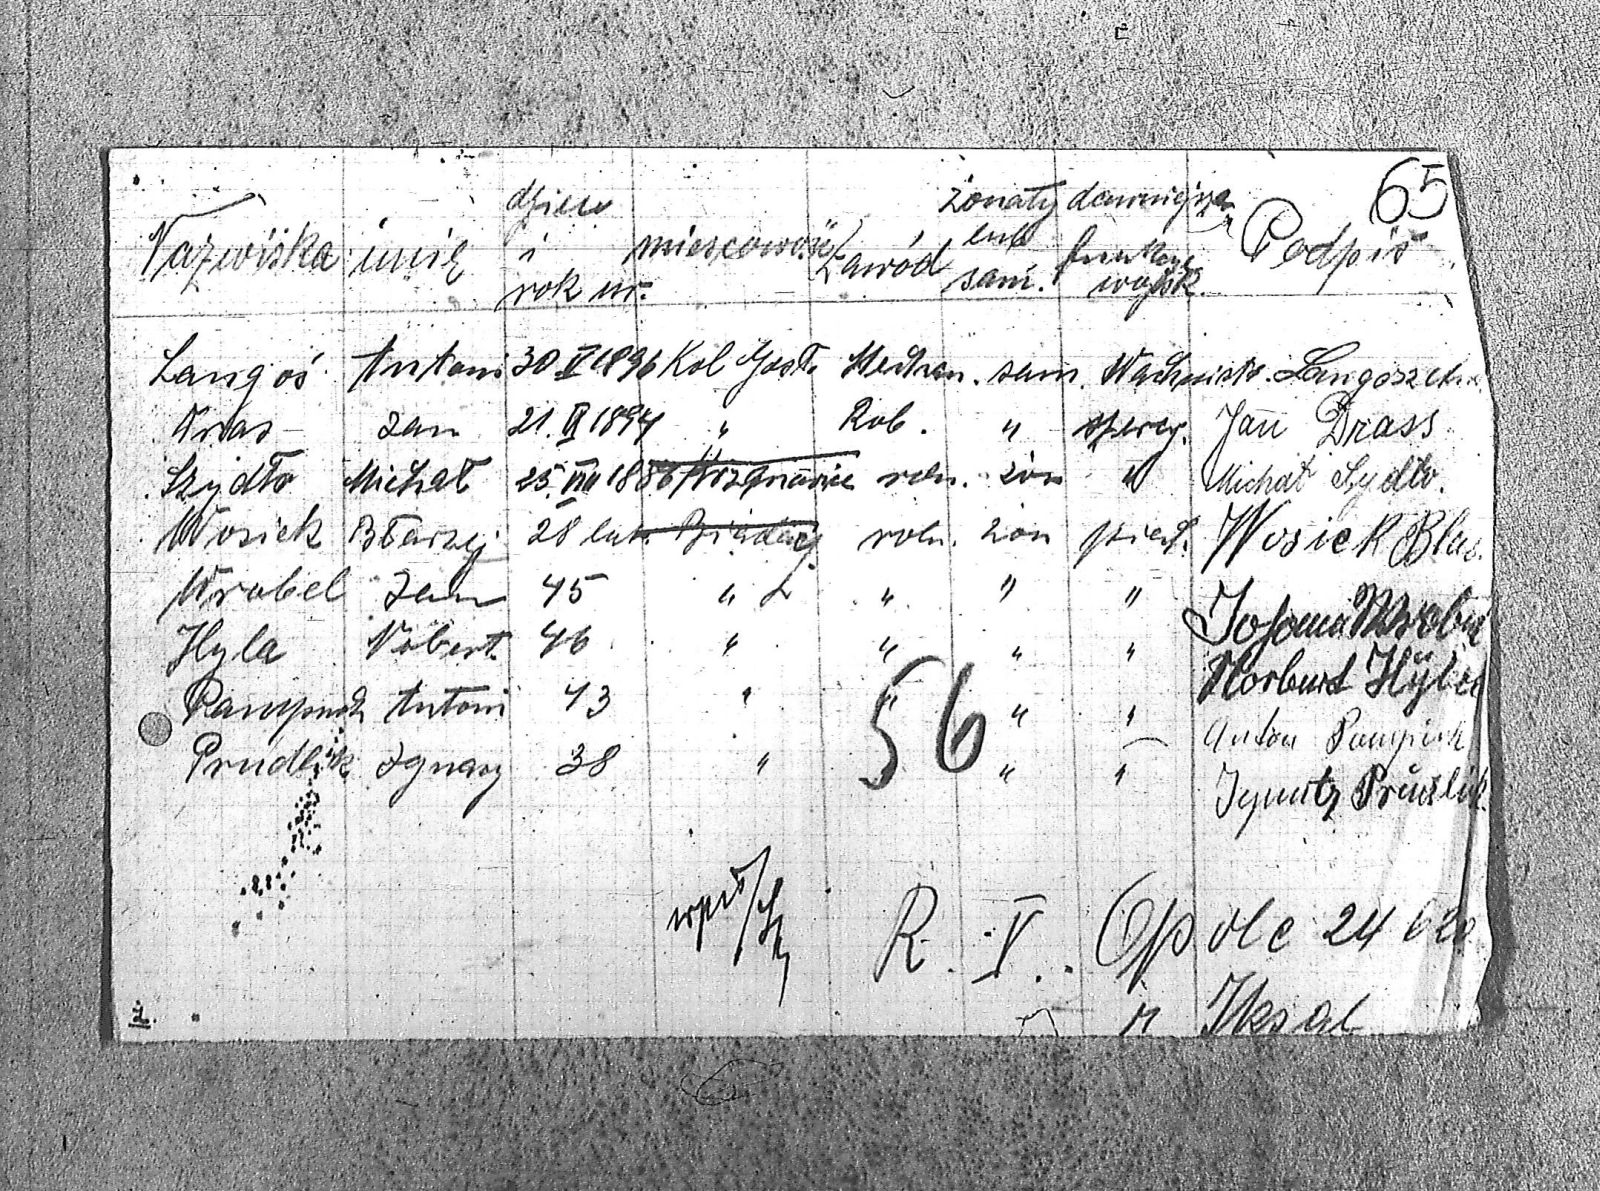 65
Nazwiska imię dzień i rok ur. miejscowość Zawód żonaty lub sam. dawniejsza funkcye wojsk. Podpis
Langoś Antoni 30 V 1896 Kol Gosł. Mechan. sam. Wachmistr. Langosz
Kras Jan 21. IX 1894 " Rob. " szereg. Jan Drass
Szydło Michał 25. VIII 1886 roln. żon " Michał Sydło.
Wosiek Błarzej 28 lat. roln. żon piech. Wosiek Blas.
Wrobel Jan 45 " " " "
Hyla Nobert. 46 " " " " Norbert Hÿla
Pampuch Antoni 43 " " " " Anton Pampuch
Prudlik Ignacy 38 " " " Ignatz Prudlik
56
R. V. Opole 24 6 20
2.